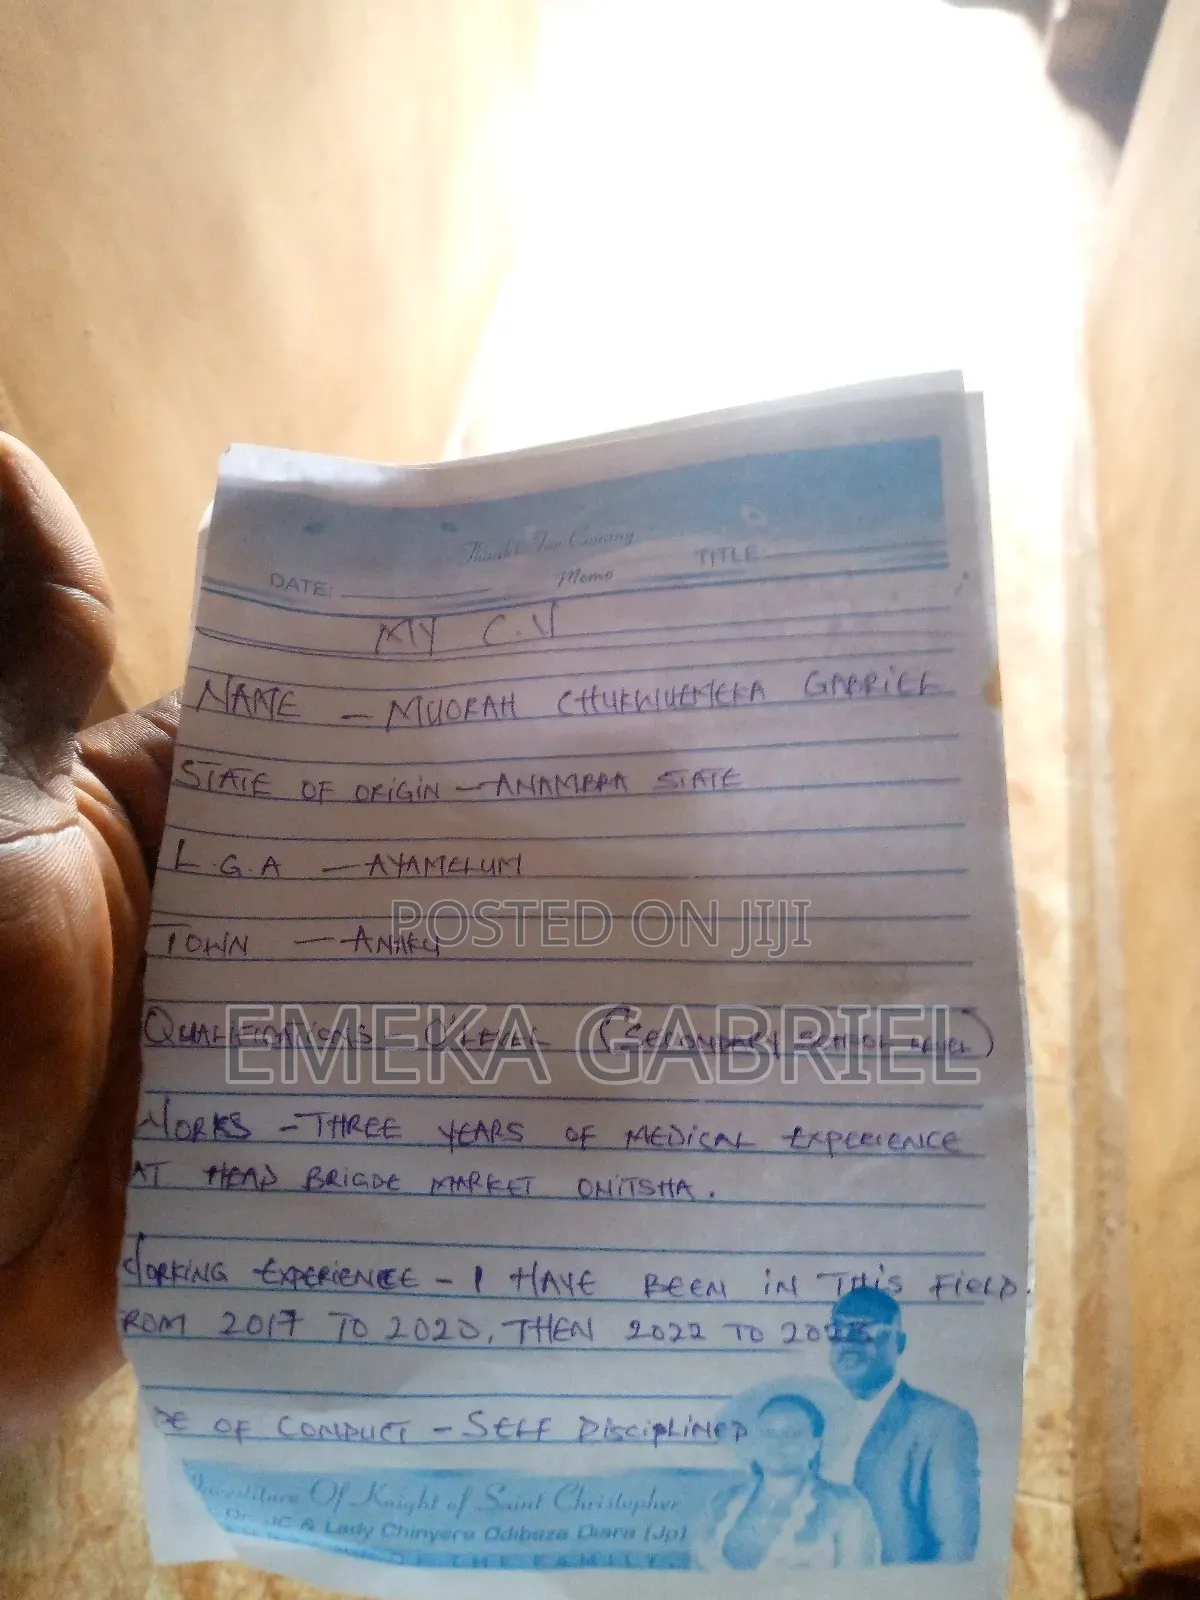 Thanks For Coming
DATE: Memo TITLE:
MY C.V
NAME – MUORAH CHUKWUEMEKA GABRIEL
STATE OF ORIGIN – ANAMBRA STATE
L.G.A – AYAMELUM
POSTED ON JIJI
TOWN – ANAKU
EMEKA GABRIEL
QUALIFICATIONS – O'LEVEL (SECONDARY SCHOOL LEVEL)
WORKS – THREE YEARS OF MEDICAL EXPERIENCE
AT HEAD BRIGDE MARKET ONITSHA.
WORKING EXPERIENCE – I HAVE BEEN IN THIS FIELD.
FROM 2017 TO 2020, THEN 2022 TO
DE OF CONDUCT – SELF DISCIPLINED
Investiture Of Knight of Saint Christopher
& Lady Chinyere Odibeze Diara (Jp)
OF THE FAMILY.